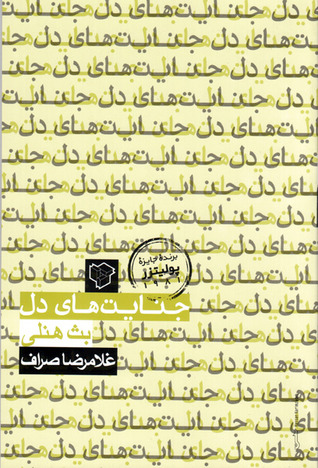 جنایت‌های دل جنایت‌های دل جنایت‌های دل
برندهٔ جایزهٔ
پولیتزر
۱۹۸۱
جنایت‌های دل
بث هنلی
غلامرضا صراف